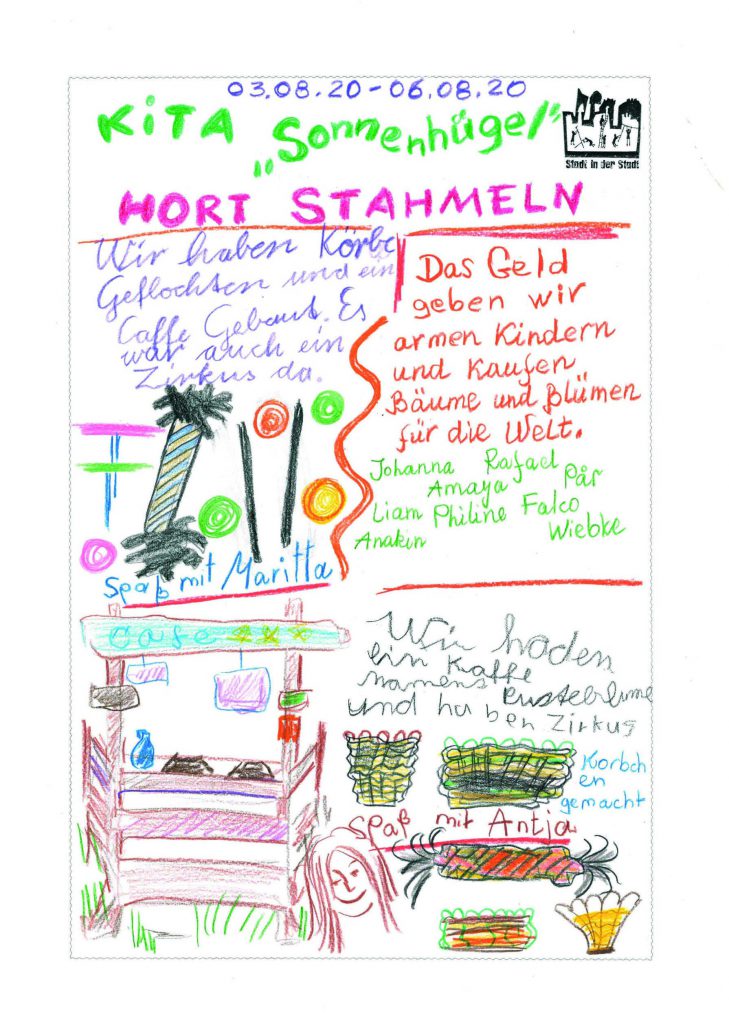 03.08.20 - 06.08.20
KiTA „Sonnenhügel"
Stadt in der Stadt
HORT STAHMELN
Wir haben Körbe
Geflochten und ein
Caffe Gebaut. Es
war auch ein
Zirkus da.
Das Geld
geben wir
armen Kindern
und Kaufen
Bäume und Blümen
für die Welt.
Johanna Rafael
Amaya Pår
Liam Philine Falco
Anakin Wiebke
Spaß mit Maritta
Cafe
Wir haden
ein Kaffe
namens Pusteblume
und haben Zirkus
Korbch
en
gemacht
Spaß mit Antja